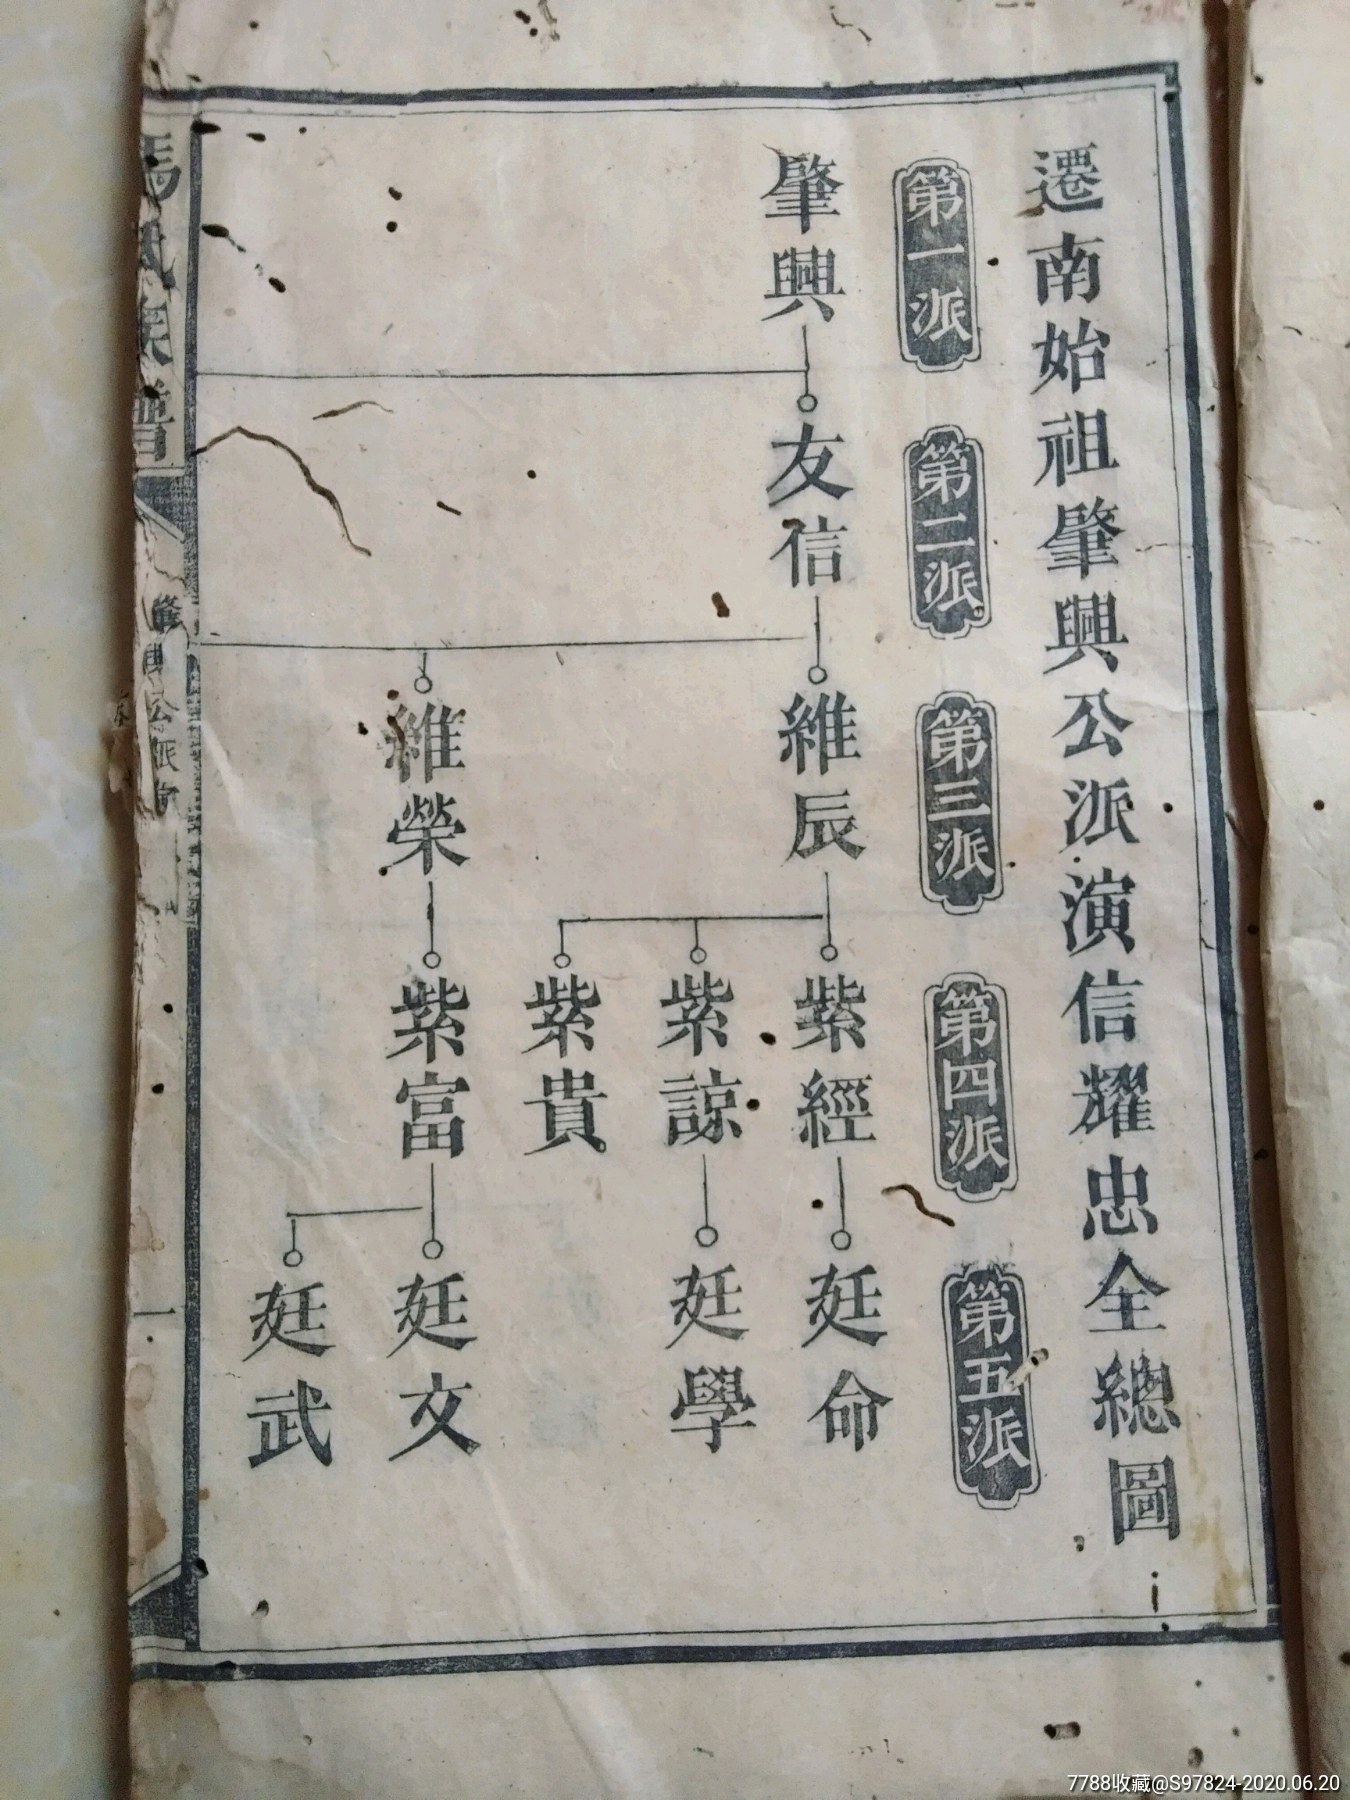 遷南始祖肇興公派演信耀忠全總圖
第一派
第二派
第三派
第四派
第五派
肇興
友信
維辰
維榮
紫經
紫諒
紫貴
紫富
廷命
廷學
廷文
廷武
氏族譜
肇興公派
一
7788收藏@S97824-2020.06.20